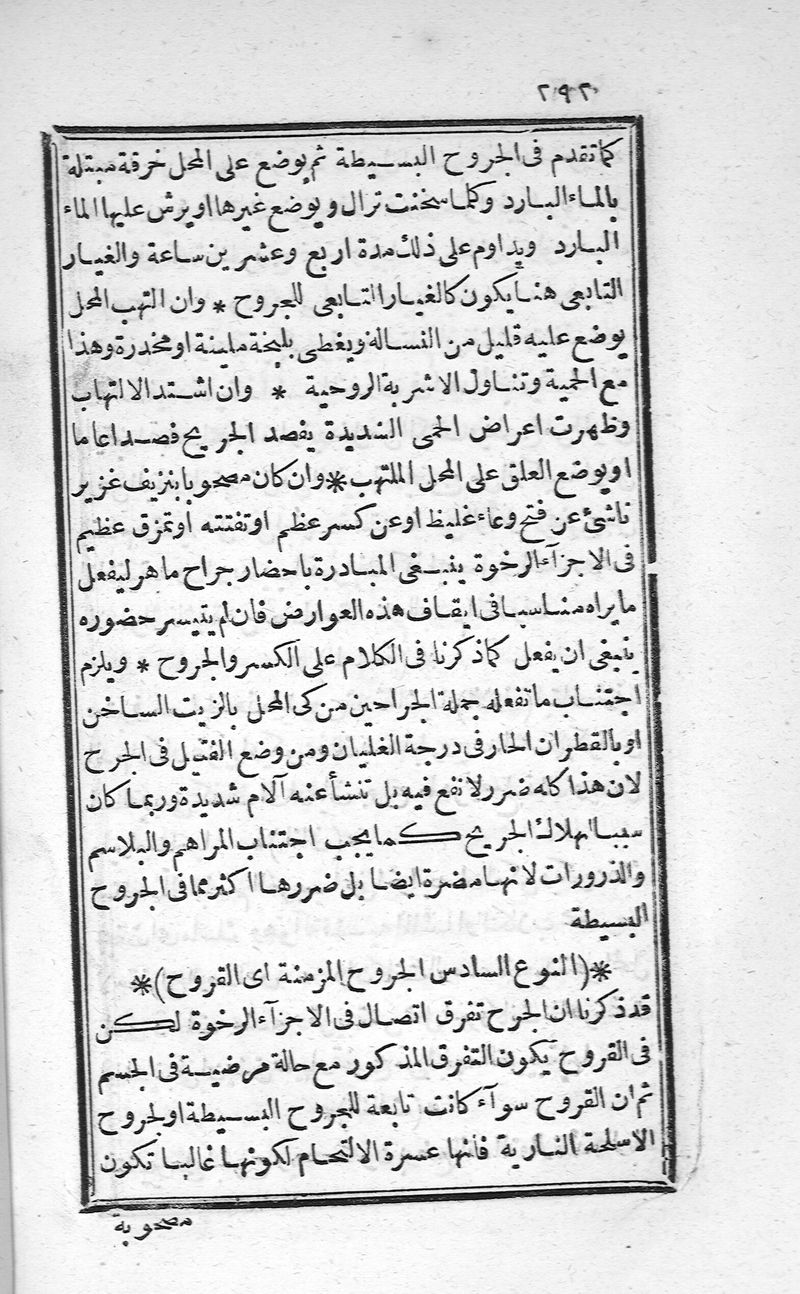 ٢٩٢
كما تقدم فى الجروح البسيطة ثم يوضع على المحل خرقة مبتلة
بالماء البارد وكلما سخنت تزال ويوضع غيرها او يرش عليها الماء
البارد ويداوم على ذلك مدة اربع وعشرين ساعة والغيار
التابعى هنا يكون كالغيار التابعى للجروح * وان التهب المحل
يوضع عليه قليل من النسالة ويغطى بلبخة ملينة او مخدرة وهذا
مع الحمية وتناول الاشربة الروحية * وان اشتد الالتهاب
وظهرت اعراض الحمى الشديدة يفصد الجريح فصدا عاما
او يوضع العلق على المحل الملتهب * وان كان مصحوبا بنزيف غزير
ناشئ عن فتح وعاء غليظ او عن كسر عظم او تفتته او تمزق عظيم
فى الاجزآء الرخوة ينبغى المبادرة باحضار جراح ماهر ليفعل
ما يراه مناسبا فى ايقاف هذه العوارض فان لم يتيسر حضوره
ينبغى ان يفعل كما ذكرنا فى الكلام على الكسر والجروح * ويلزم
اجتناب ما تفعله جملة الجراحين من كى المحل بالزيت الساخن
او بالقطران الحار فى درجة الغليان ومن وضع الفتيل فى الجرح
لان هذا كله ضرر لا نفع فيه بل تنشأ عنه آلام شديدة وربما كان
سببا لهلاك الجريح كما يجب اجتناب المراهم والبلاسم
والذرورات لانها مضرة ايضا بل ضررها اكثر مما فى الجروح
البسيطة
*(النوع السادس الجروح المزمنة اى القروح)*
قد ذكرنا ان الجرح تفرق اتصال فى الاجزآء الرخوة لكن
فى القروح يكون التفرق المذكور مع حالة مرضية فى الجسم
ثم ان القروح سوآء كانت تابعة للجروح البسيطة او لجروح
الاسلحة النارية فانها عسرة الالتحام لكونها غالبا تكون
مصحوبة